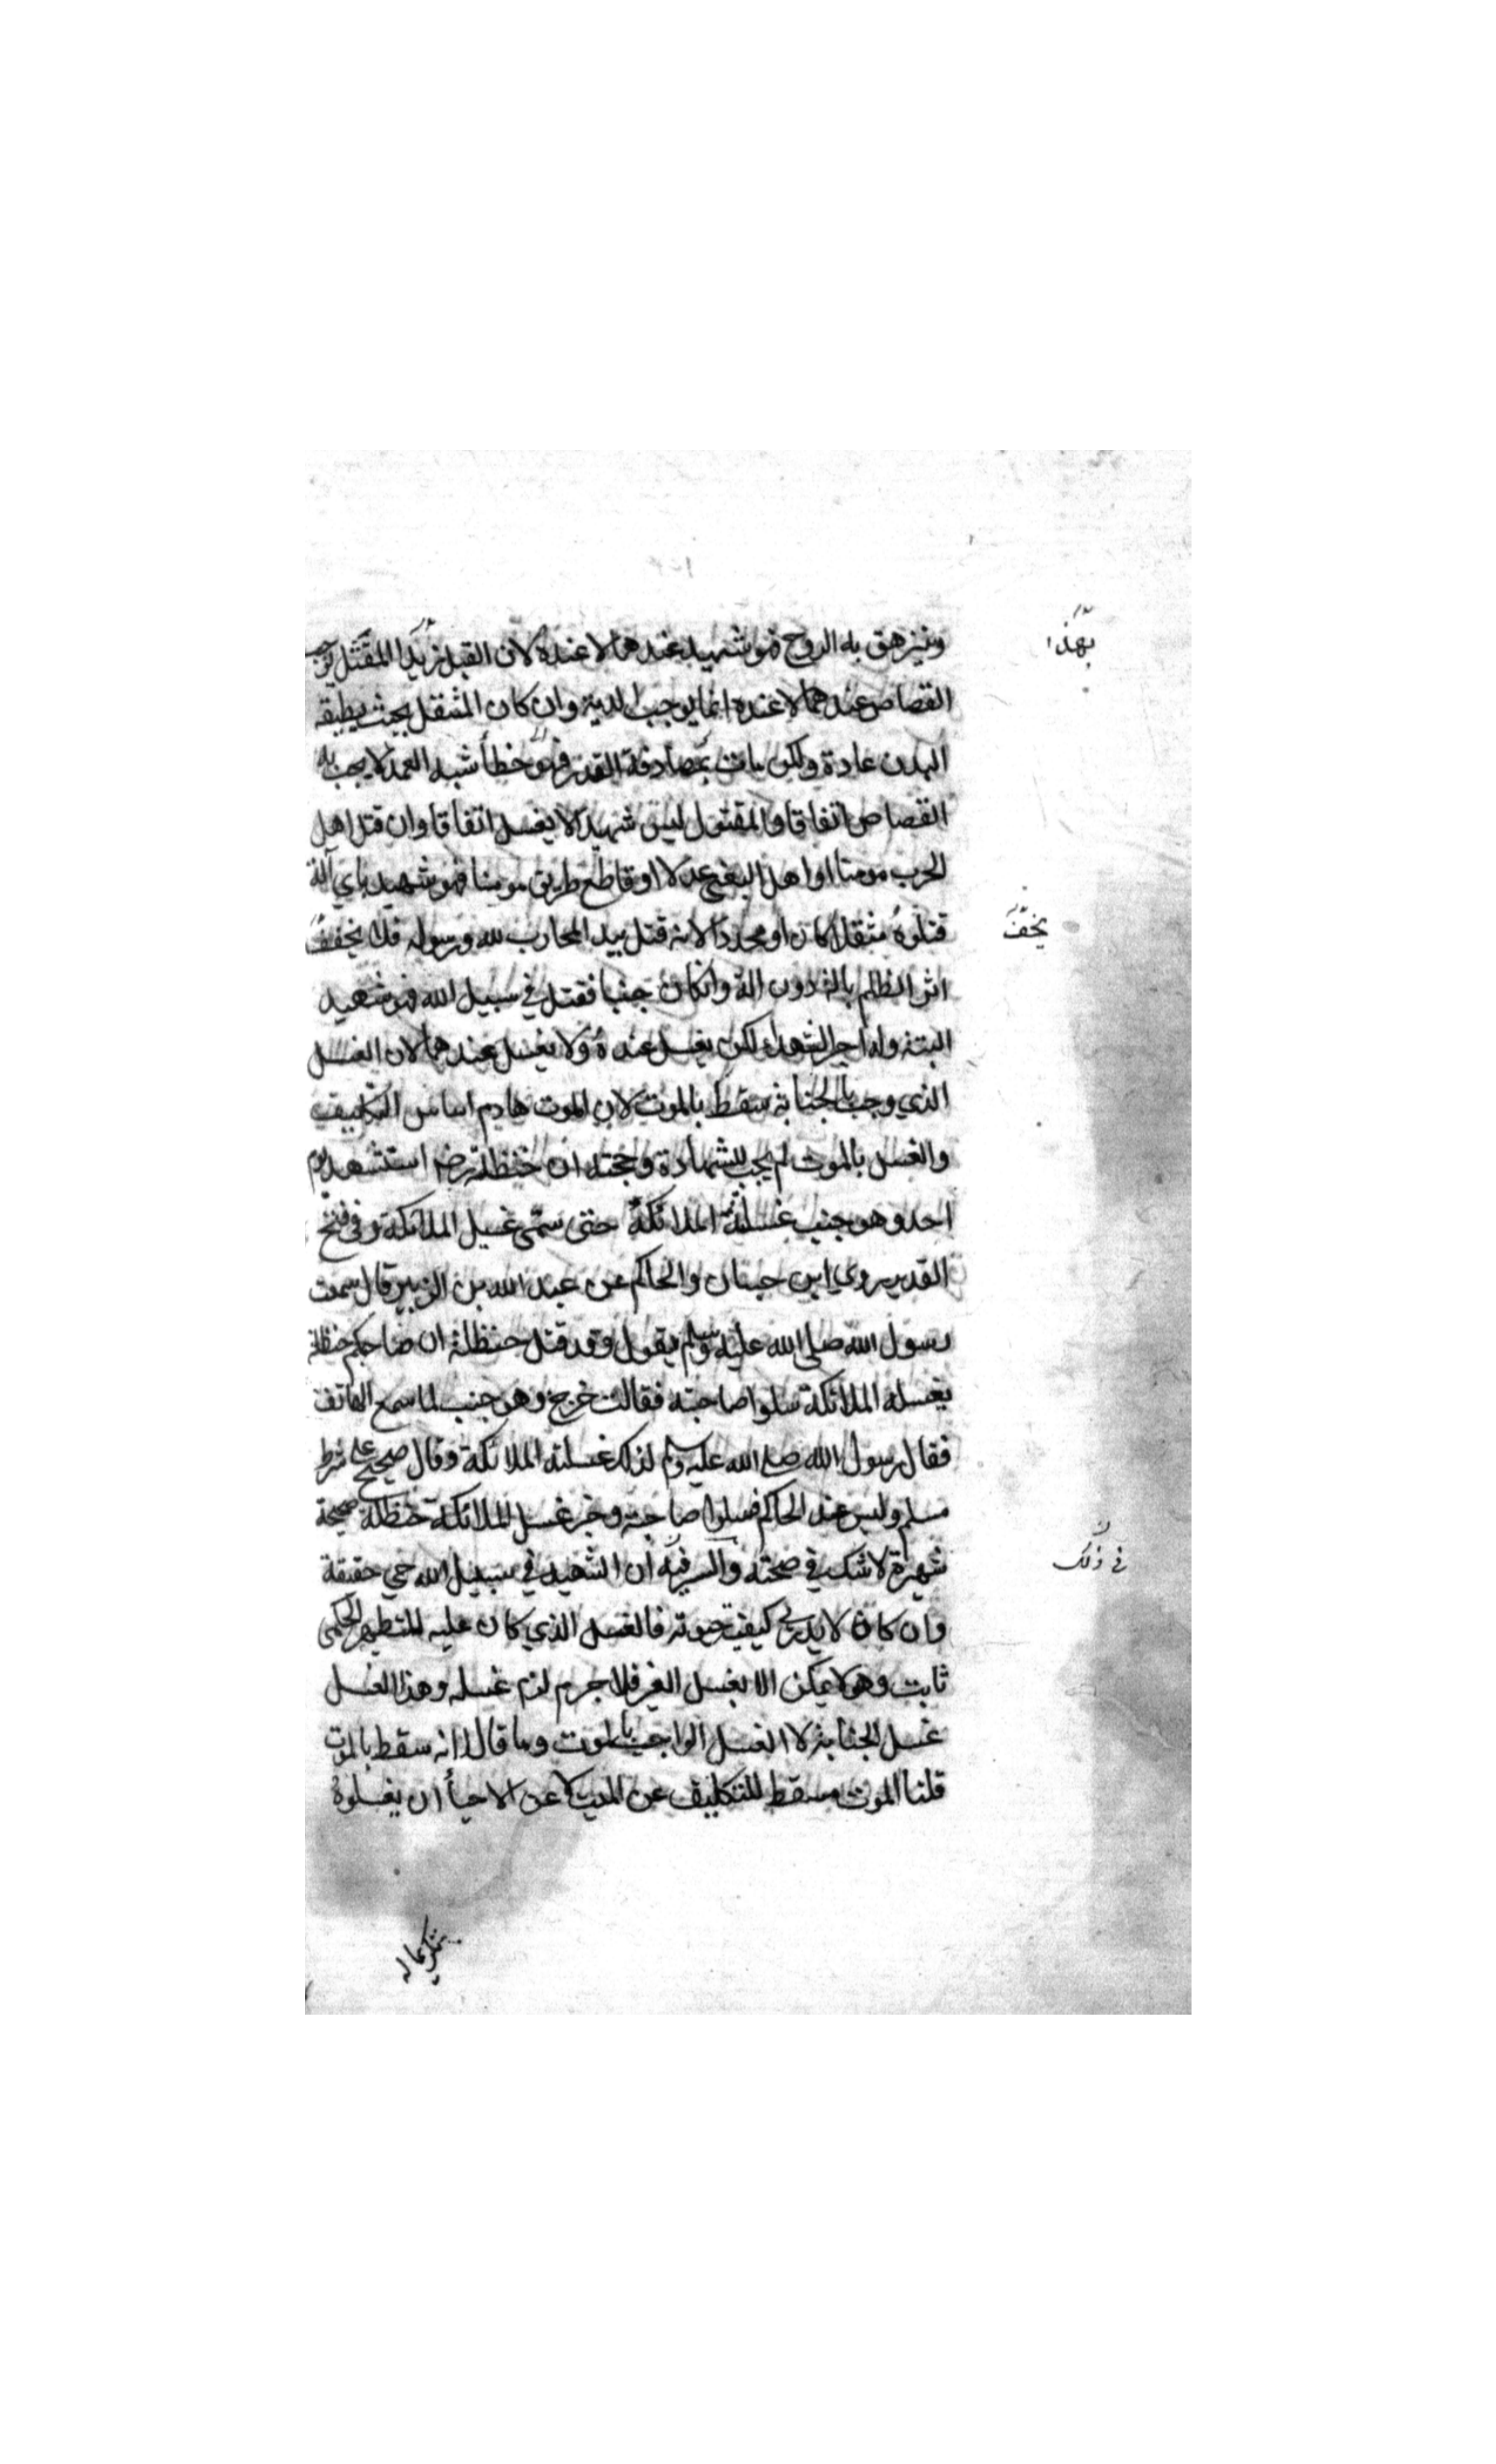 ويزهق به الروح فهو شهيد عندهما لا عنده لان القتل بهذا المثقل يوجب
القصاص عندهما لا عنده انما يوجب الدية وان كان المثقل بحيث يطيقه
البدن عادة ولكن مات بمصادفة القدر فهو خطأ شبه العمد لا يجب به
القصاص اتفاقا والمقتول ليس شهيدا يغسل اتفاقا وان قتل اهل
الحرب مومنا او اهل البغي عدلا او قاطع طريق مومنا فهو شهيد باي آلة
قتلوه مثقلا كان او محددا لانه قتل بيد المحارب لله ورسوله فلا يخفف
اثر الظلم بالة دون الة وان كان جنبا فقتل في سبيل الله فهو شهيد
البتة وله اجر الشهداء لكن يغسل عنده ولا يغسل عندهما لان الغسل
الذي وجب بالجنابة سقط بالموت لان الموت هادم اساس التكليف
والغسل بالموت لم يجب للشهادة وحجته ان حنظلة رض استشهد يوم
احد وهو جنب غسلته الملائكة حتى سمى غسيل الملائكة وفي فتح
القدير روي ابن حبان والحاكم عن عبد الله بن الزبير قال سمعت
رسول الله صلى الله عليه وسلم يقول وقد قتل حنظلة ان صاحبكم حنظلة
يغسله الملائكة سلوا صاحبته فقالت خرج وهو جنب لما سمع الهاتف
فقال رسول الله صلى الله عليه وسلم لذلك غسلته الملائكة وقال صحيح على شرط
مسلم وليس عند الحاكم فسلوا صاحبته وخبر غسل الملائكة حنظلة صحيحة
شهيرة لا شك في صحته والسر فيه ان الشهيد في سبيل الله حي حقيقة
وان كان لا يدري كيفية حيوته فالغسل الذي كان عليه للتطهر الحكمي
ثابت وهو لا يمكن الا بغسل الغير فلا جرم لزم غسله وهذا الغسل
غسل الجنابة لا الغسل الواجب بالموت وما قالا انه سقط بالموت
قلنا الموت مسقط للتكليف عن الميت لا عن الاحياء ان يغسلوه
بهذا
يخفف
في ذلك